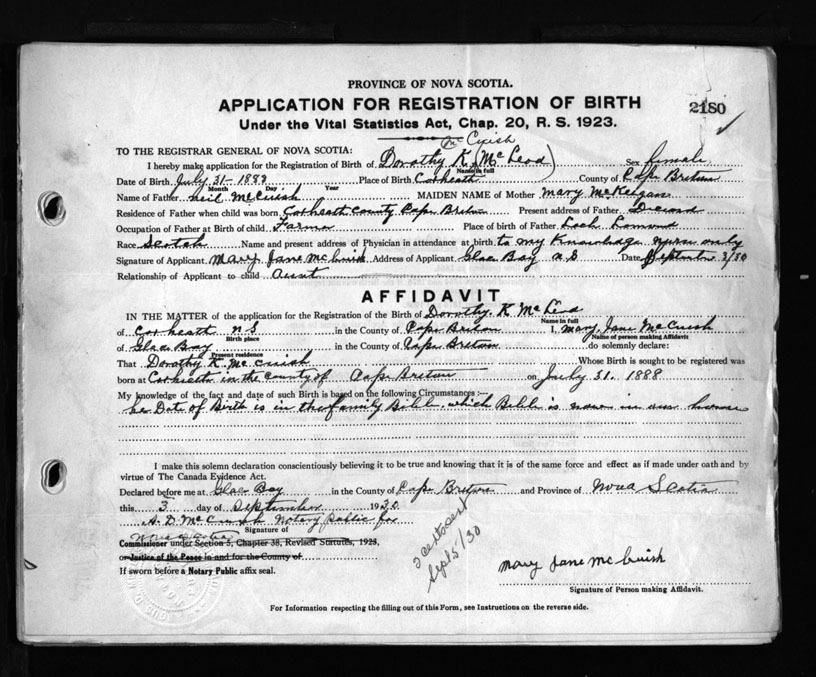 PROVINCE OF NOVA SCOTIA.
APPLICATION FOR REGISTRATION OF BIRTH
2180
Under the Vital Statistics Act, Chap. 20, R. S. 1923.
Mc Cuish
TO THE REGISTRAR GENERAL OF NOVA SCOTIA:
I hereby make application for the Registration of Birth of Dorothy K (McLeod) Sex female
Name in full
Date of Birth July 31 - 1888 Place of Birth Coxheath County of Cape Breton
Month Day Year
Name of Father Neil McCuish MAIDEN NAME of Mother Mary McKeigan
Residence of Father when child was born Coxheath County Cape Breton Present address of Father
Occupation of Father at Birth of child Farmer Place of birth of Father Loch Lomond
Race Scotch Name and present address of Physician in attendance at birth to my Knowledge nurse only
Signature of Applicant Mary Jane McCuish Address of Applicant Glace Bay N S Date September 3/30
Relationship of Applicant to child Aunt
AFFIDAVIT
IN THE MATTER of the application for the Registration of the Birth of Dorothy K McLeod
Name in full
of Coxheath N S in the County of Cape Breton I, Mary Jane McCuish
Birth place Name of person making Affidavit
of Glace Bay in the County of Cape Breton do solemnly declare:
Present residence
That Dorothy K McCuish Whose Birth is sought to be registered was
born at Coxheath in the County of Cape Breton on July 31. 1888
My knowledge of the fact and date of such Birth is based on the following Circumstances:—
he Date of Birth is in the family Bible. which Bible is now in our home
I make this solemn declaration conscientiously believing it to be true and knowing that it is of the same force and effect as if made under oath and by
virtue of The Canada Evidence Act.
Declared before me at Glace Bay in the County of Cape Breton and Province of Nova Scotia
this 3 day of September 1930
A. D. McCuish Notary Public for
Signature of
Nova Scotia
Commissioner under Section 5, Chapter 38, Revised Statutes, 1923,
or Justice of the Peace in and for the County of
If sworn before a Notary Public affix seal.
Sept 5/30
Mary Jane McCuish
Signature of Person making Affidavit.
For Information respecting the filling out of this Form, see Instructions on the reverse side.